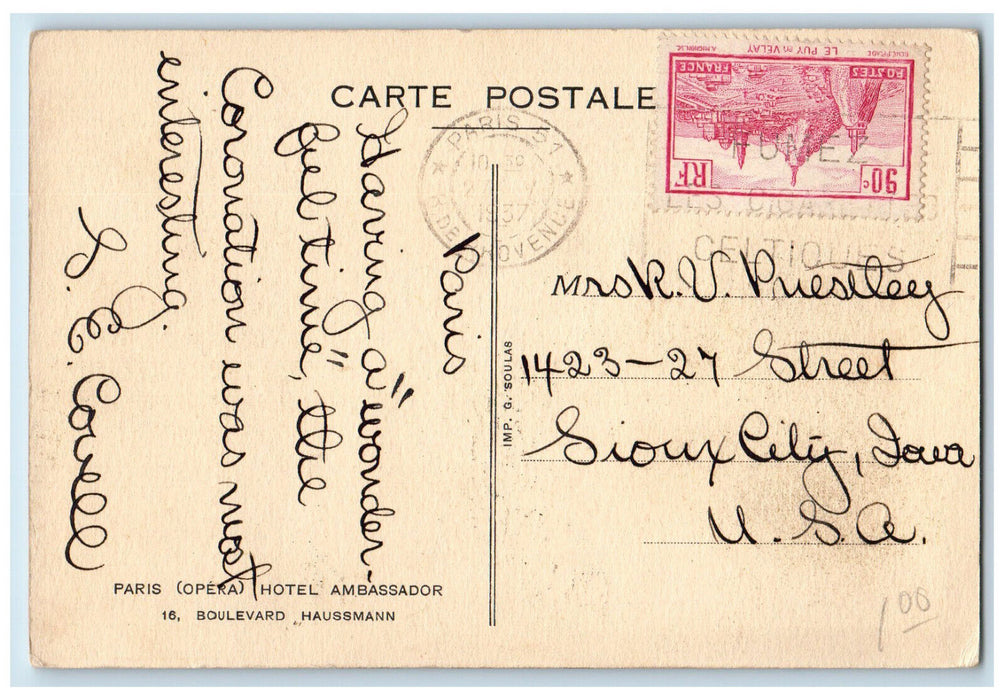 CARTE POSTALE
Paris
Having a "wonder-
ful time", the
Coronation was most
interesting.
L. E. Covell
PARIS (OPÉRA) HOTEL AMBASSADOR
16, BOULEVARD HAUSSMANN
IMP. G. SOULAS
LE PUY EN VELAY
POSTES
FRANCE
90c
RF
PARIS 51
1937
DE PROVENCE
FUMEZ
LES
CELTIQUES
Mrs R. V. Priestley
1423-27 Street
Sioux City, Iowa
U. S. A.
1 00